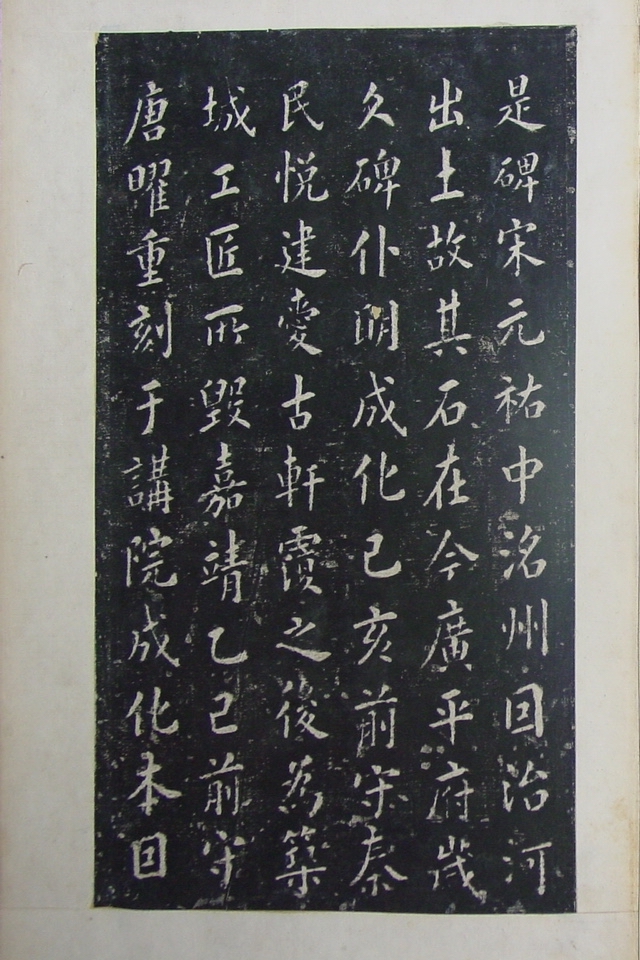 是碑宋元祐中洺州回治河
出土故其石在今廣平府歲
久碑仆明成化己亥前守秦
民悅建愛古軒覆之後爲築
城工匠所毀嘉靖乙巳前守
唐曜重刻于講院成化本回